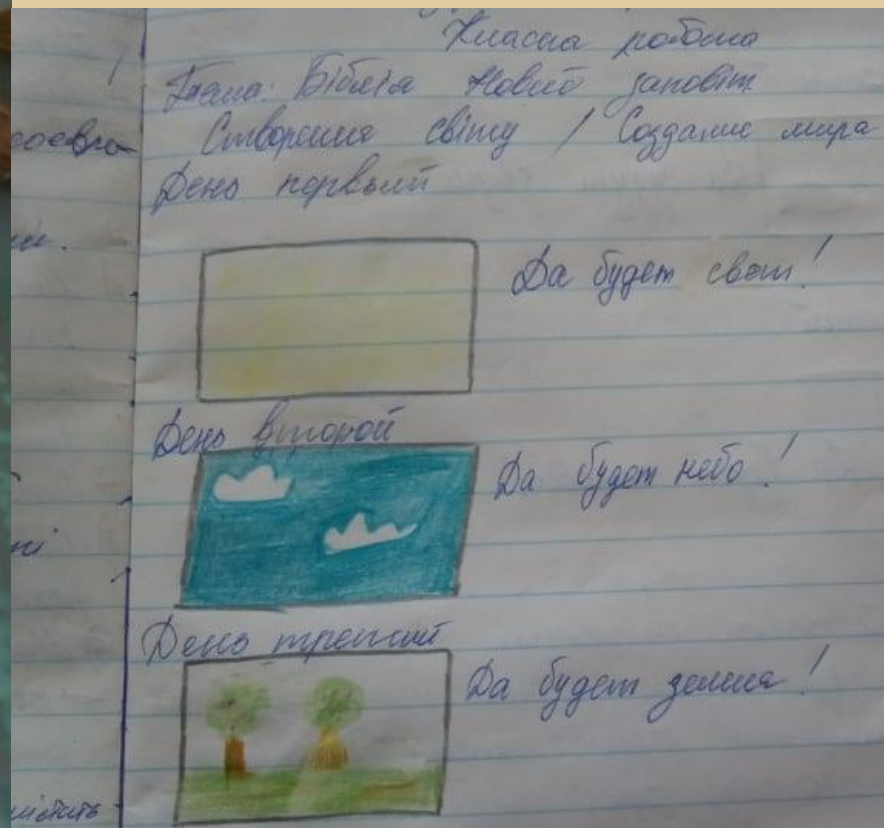 Класна робота
Тема: Біблія Новий заповіт
Створення світу / Создание мира
День первый
Да будет свет!
День второй
Да будет небо!
День третий
Да будет земля!